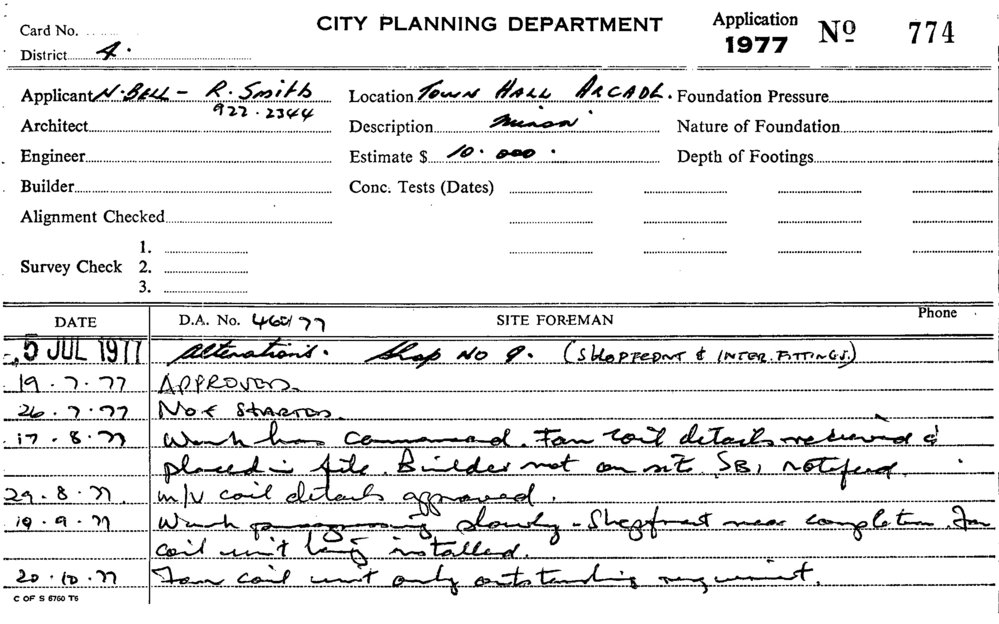 Card No.
CITY PLANNING DEPARTMENT
Application 1977 No 774
District 4.
Applicant N. BELL - R. Smith
922.2344
Location TOWN HALL ARCADE.
Foundation Pressure
Architect
Description minor
Nature of Foundation
Engineer
Estimate $ 10.000.
Depth of Footings
Builder
Conc. Tests (Dates)
Alignment Checked
1.
Survey Check 2.
3.
DATE D.A. No. 77 SITE FOREMAN Phone
5 JUL 1977 Alterations. Shop No 9. (SHOPFRONT & INTER. FITTINGS)
19.7.77 APPROVED.
26.7.77 Not STARTED.
17.8.77 Work has commenced. Fan coil details received &
placed in file. Builder not on site. SB1 notified.
29.8.77. m/v coil details approved.
19.9.77 Work progressing slowly - Shopfront near completion. Fan
coil unit being installed.
20.10.77 Fan coil unit only outstanding requirement.
C OF S 6760 T6